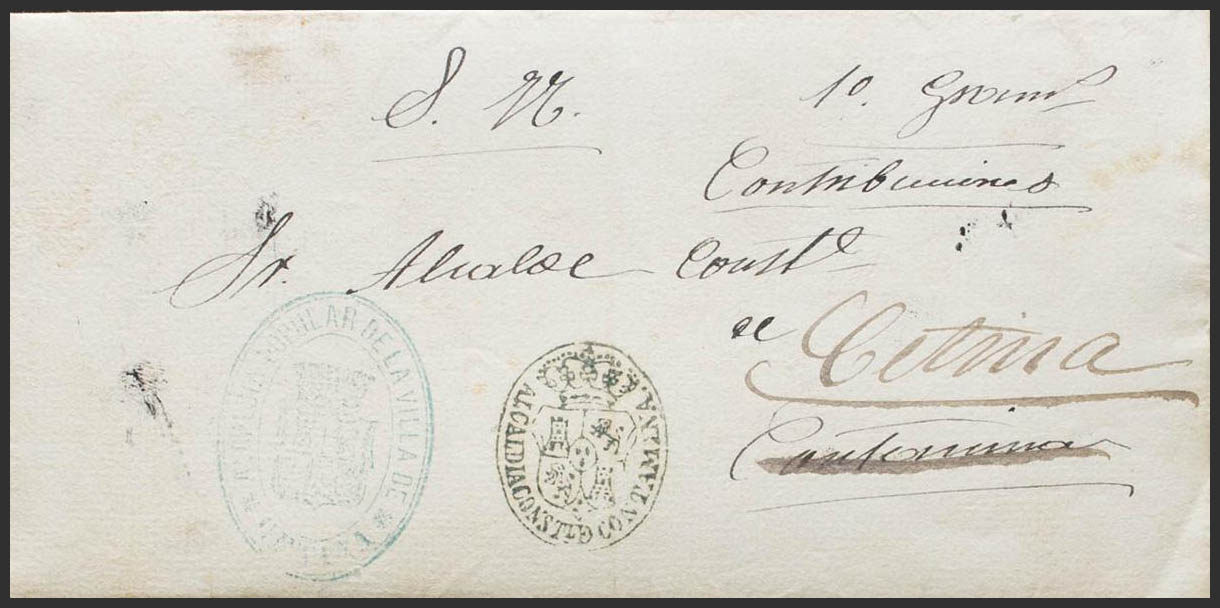 S. N. 1º. Grem.l
Contribuciones
Sr. Alcalde Constl
de Cetina
Contamina
POPULAR DE LA VILLA DE
ALCALDIA CONST. DE CONTAMINA.